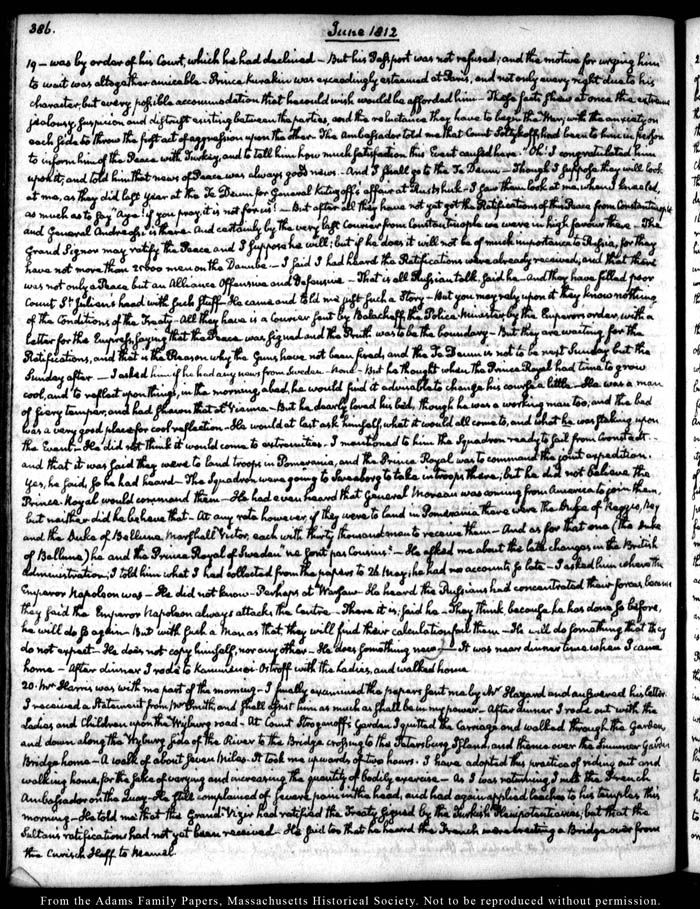 386.
June 1812
19 — was by order of his Court, which he had declined — But his Passport was not refused; and the motive for urging him
to wait was altogether amicable — Prince Kurakin was exceedingly esteemed at Paris, and not only every right due to his
character, but every possible accommodation that he could wish would be afforded him — These facts shew at once the extreme
jealousy, suspicion and distrust existing between the parties, and the reluctance they have to begin the War, with the anxiety on
each side to throw the first act of aggression upon the other. The Ambassador told me that Count Soltykoff had been to him in person
to inform him of the Peace with Turkey, and to tell him how much satisfaction this Event caused here. "Oh! I congratulated him
upon it, and told him that news of Peace was always good news — And I shall go to the Te Deum — Though I suppose they will look
at me, as they did last year at the Te Deum for General Kutuzoff's affair at Rushchuk — I saw them look at me, when I kneeled,
as much as to say 'Aye! if you pray, it is not for us'! — But after all they have not yet got the Ratifications of this Peace from Constantinople
and General Andreossi is there — And certainly by the very last Courier from Constantinople we were in high favour there — The
Grand Signor may ratify the Peace and I suppose he will; but if he does it will not be of much importance to Russia, for they
have not more than 25000 men on the Danube. — I said I had heard the Ratifications were already received; and that there
was not only a Peace but an Alliance Offensive and Defensive — That is all Russian talk, said he — And they have filled poor
Count St. Julien's head with such stuff — He came and told me just such a Story — But you may rely upon it they know nothing
of the Conditions of the Treaty — All they have is a Courier sent by Balacheff, the Police Minister, by the Emperor's order, with a
letter for the Empress, saying that the Peace was signed and the Pruth was to be the boundary — But they are waiting for the
Ratifications, and that is the Reason why the Guns have not been fired, and the Te Deum is not to be next Sunday but the
Sunday after — I asked him if he had any news from Sweden — None — But he thought when the Prince Royal had time to grow
cool, and to reflect upon things, in the morning, abed, he would find it advisable to change his course a little — He was a man
of fiery temper, and had shewn that at Vienna — But he dearly loved his bed, though he was a working man too; and the bed
was a very good place for cool reflection — He would at last ask himself, what it would all come to, and what he was staking upon
the Event — He did not think it would come to extremities. I mentioned to him the Squadron ready to sail from Cronstadt —
and that it was said they were to land troops in Pomerania, and the Prince Royal was to command the joint expedition.
Yes, he said, so he had heard — The Squadron were going to Sveaborg to take in troops there; but he did not believe the
Prince Royal would command them — He had even heard that General Moreau was coming from America to join them,
but neither did he believe that — At any rate however, if they were to land in Pomerania there were the Duke of Reggio, Ney
and the Duke of Belluno Marshall Victor, each with thirty thousand men to receive them — And as for that one (the Duke
of Belluno) he and the Prince Royal of Sweden "ne sont pas Cousins" — He asked me about the late changes in the British
administration; I told him what I had collected from the papers to 26 May; he had no accounts so late — I asked him where the
Emperor Napoleon was — He did not know — Perhaps at Warsaw — He heard the Russians had concentrated their forces, because
they said the Emperor Napoleon always attacks the Centre — There it is; said he — They think because he has done so before,
he will do so again — But with such a Man as that, they will find their calculations fail them — He will do something that they
do not expect — He does not copy himself, nor any other — He does something new — It was near dinner time when I came
home — After dinner I rode to Kammenoi-Ostroff with the Ladies, and walked home
20. Mr Harris was with me part of the morning — I finally examined the papers sent me by Mr Hazard and answered his letter.
I received a Statement from Mr Smith, and shall assist him as much as shall be in my power — After dinner I rode out with the
Ladies and Children upon the Wyburg road — At Count Stroganoff's Garden I quitted the Carriage and walked through the Garden,
and down along the Wyburg side of the River to the Bridge crossing to the Petersburg Island, and thence over the Summer Garden
Bridge home — A walk of about seven Miles. It took me upwards of two hours. I have adopted this practice of riding out and
walking home, for the sake of varying and increasing the quantity of bodily exercise — As I was returning I met the French
Ambassador on the Quay — He still complained of severe pain in the head, and had again applied leeches to his temples this
morning — He told me that the Grand-Vizir had ratified the Treaty signed by the Turkish Plenipotentiaries; but that the
Sultan's ratifications had not yet been received — He said too that he heard the French were erecting a Bridge over from
the Curisch Haff to Memel
From the Adams Family Papers, Massachusetts Historical Society. Not to be reproduced without permission.